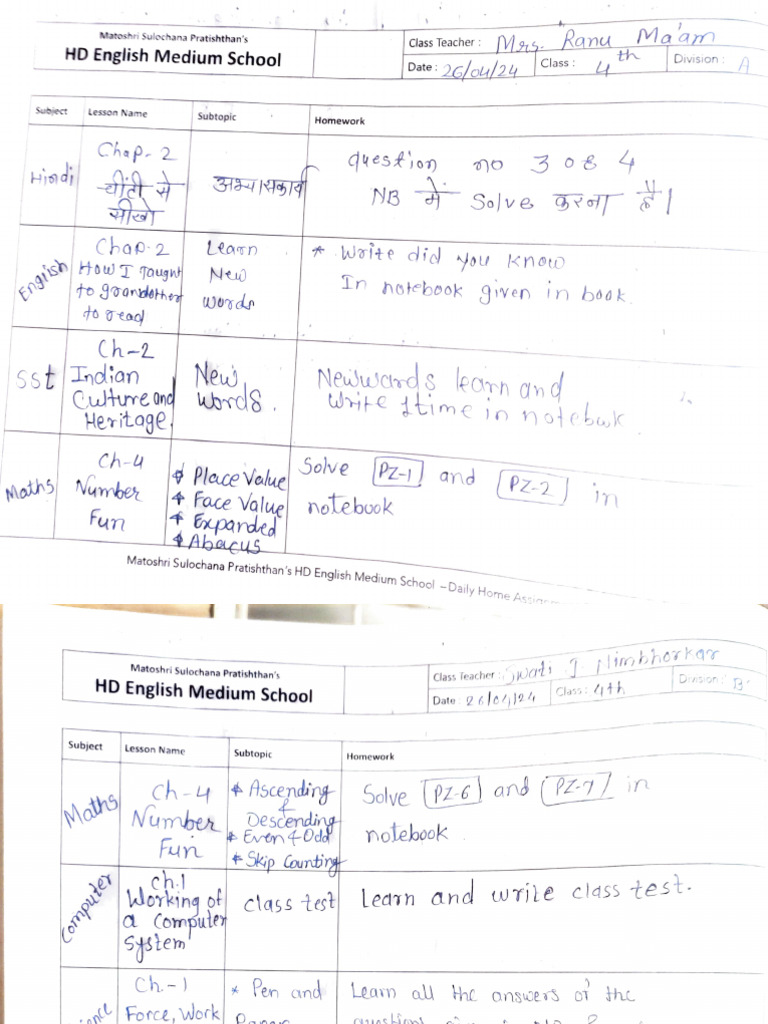 Matoshri Sulochana Pratishthan's
HD English Medium School
Class Teacher : Mrs. Ranu Ma'am
Date : 26/04/24 Class : 4th Division : A
Subject Lesson Name Subtopic Homework
Hindi
Chap-2
चींटी से
सीखो
अभ्यासकार्य
question no 3 or 4
NB में Solve करना है।
English
Chap-2
How I Taught
to grandother
to read
Learn
New
words
* Write did you know
In notebook given in book.
SSt
Ch-2
Indian
Culture and
Heritage.
New
Words.
Newwards learn and
write 1time in notebuk.
Maths
Ch-4
Number
Fun
* Place Value
* Face Value
* Expanded
* Abacus
Solve PZ-1 and PZ-2 in
notebook
Matoshri Sulochana Pratishthan's HD English Medium School –Daily Home
Matoshri Sulochana Pratishthan's
HD English Medium School
Class Teacher : Swati J Nimbhorkar
Date : 26/04/24 Class : 4th Division : B
Subject Lesson Name Subtopic Homework
Maths
Ch-4
Number
Fun
* Ascending
&
Descending
* Even & Odd
* Skip Counting
Solve PZ-6 and PZ-7 in
notebook.
Computer
Ch.1
Working of
a Computer
System
class test
Learn and write class test.
Ch.-1
Force, Work
* Pen and
Learn all the answers of the